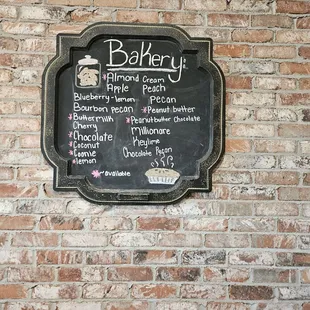 Bakery:
*Almond Cream
Apple Peach
Blueberry-lemon Pecan
Bourbon pecan *Peanut-butter
*Buttermilk *Peanutbutter Chocolate
Cherry Millionaire
*Chocolate Keylime
*Coconut Chocolate Pecan
*Cookie
*Lemon
*-available